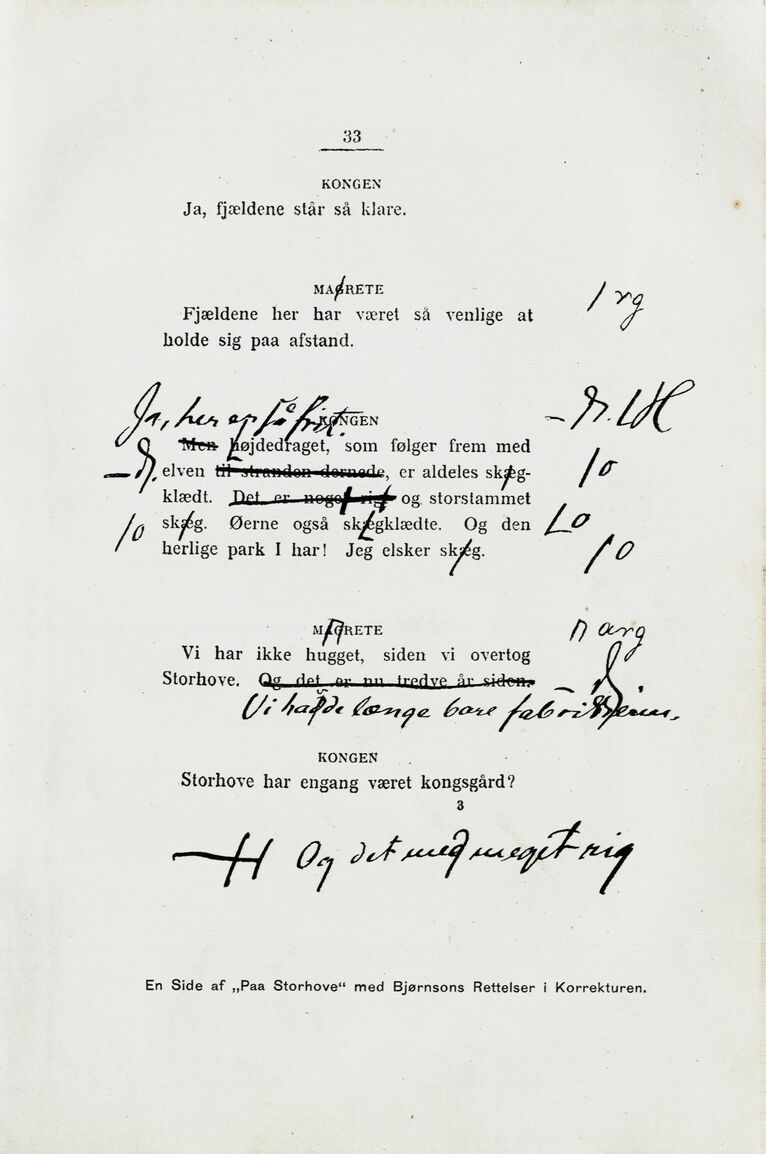 33
KONGEN
Ja, fjældene står så klare.
MAGRETE
rg
Fjældene her har været så venlige at
holde sig paa afstand.
Ja, her er så frit.
KONGEN
Men højdedraget, som følger frem med
elven til stranden dernede, er aldeles skæg-
klædt. Det er noget rigt og storstammet
skæg. Øerne også skægklædte. Og den
herlige park I har! Jeg elsker skæg.
MAGRETE
arg
Vi har ikke hugget, siden vi overtog
Storhove. Og det er nu tredve år siden.
Vi havde længe bare
KONGEN
Storhove har engang været kongsgård?
3
H Og det med meget rig
En Side af „Paa Storhove“ med Bjørnsons Rettelser i Korrekturen.